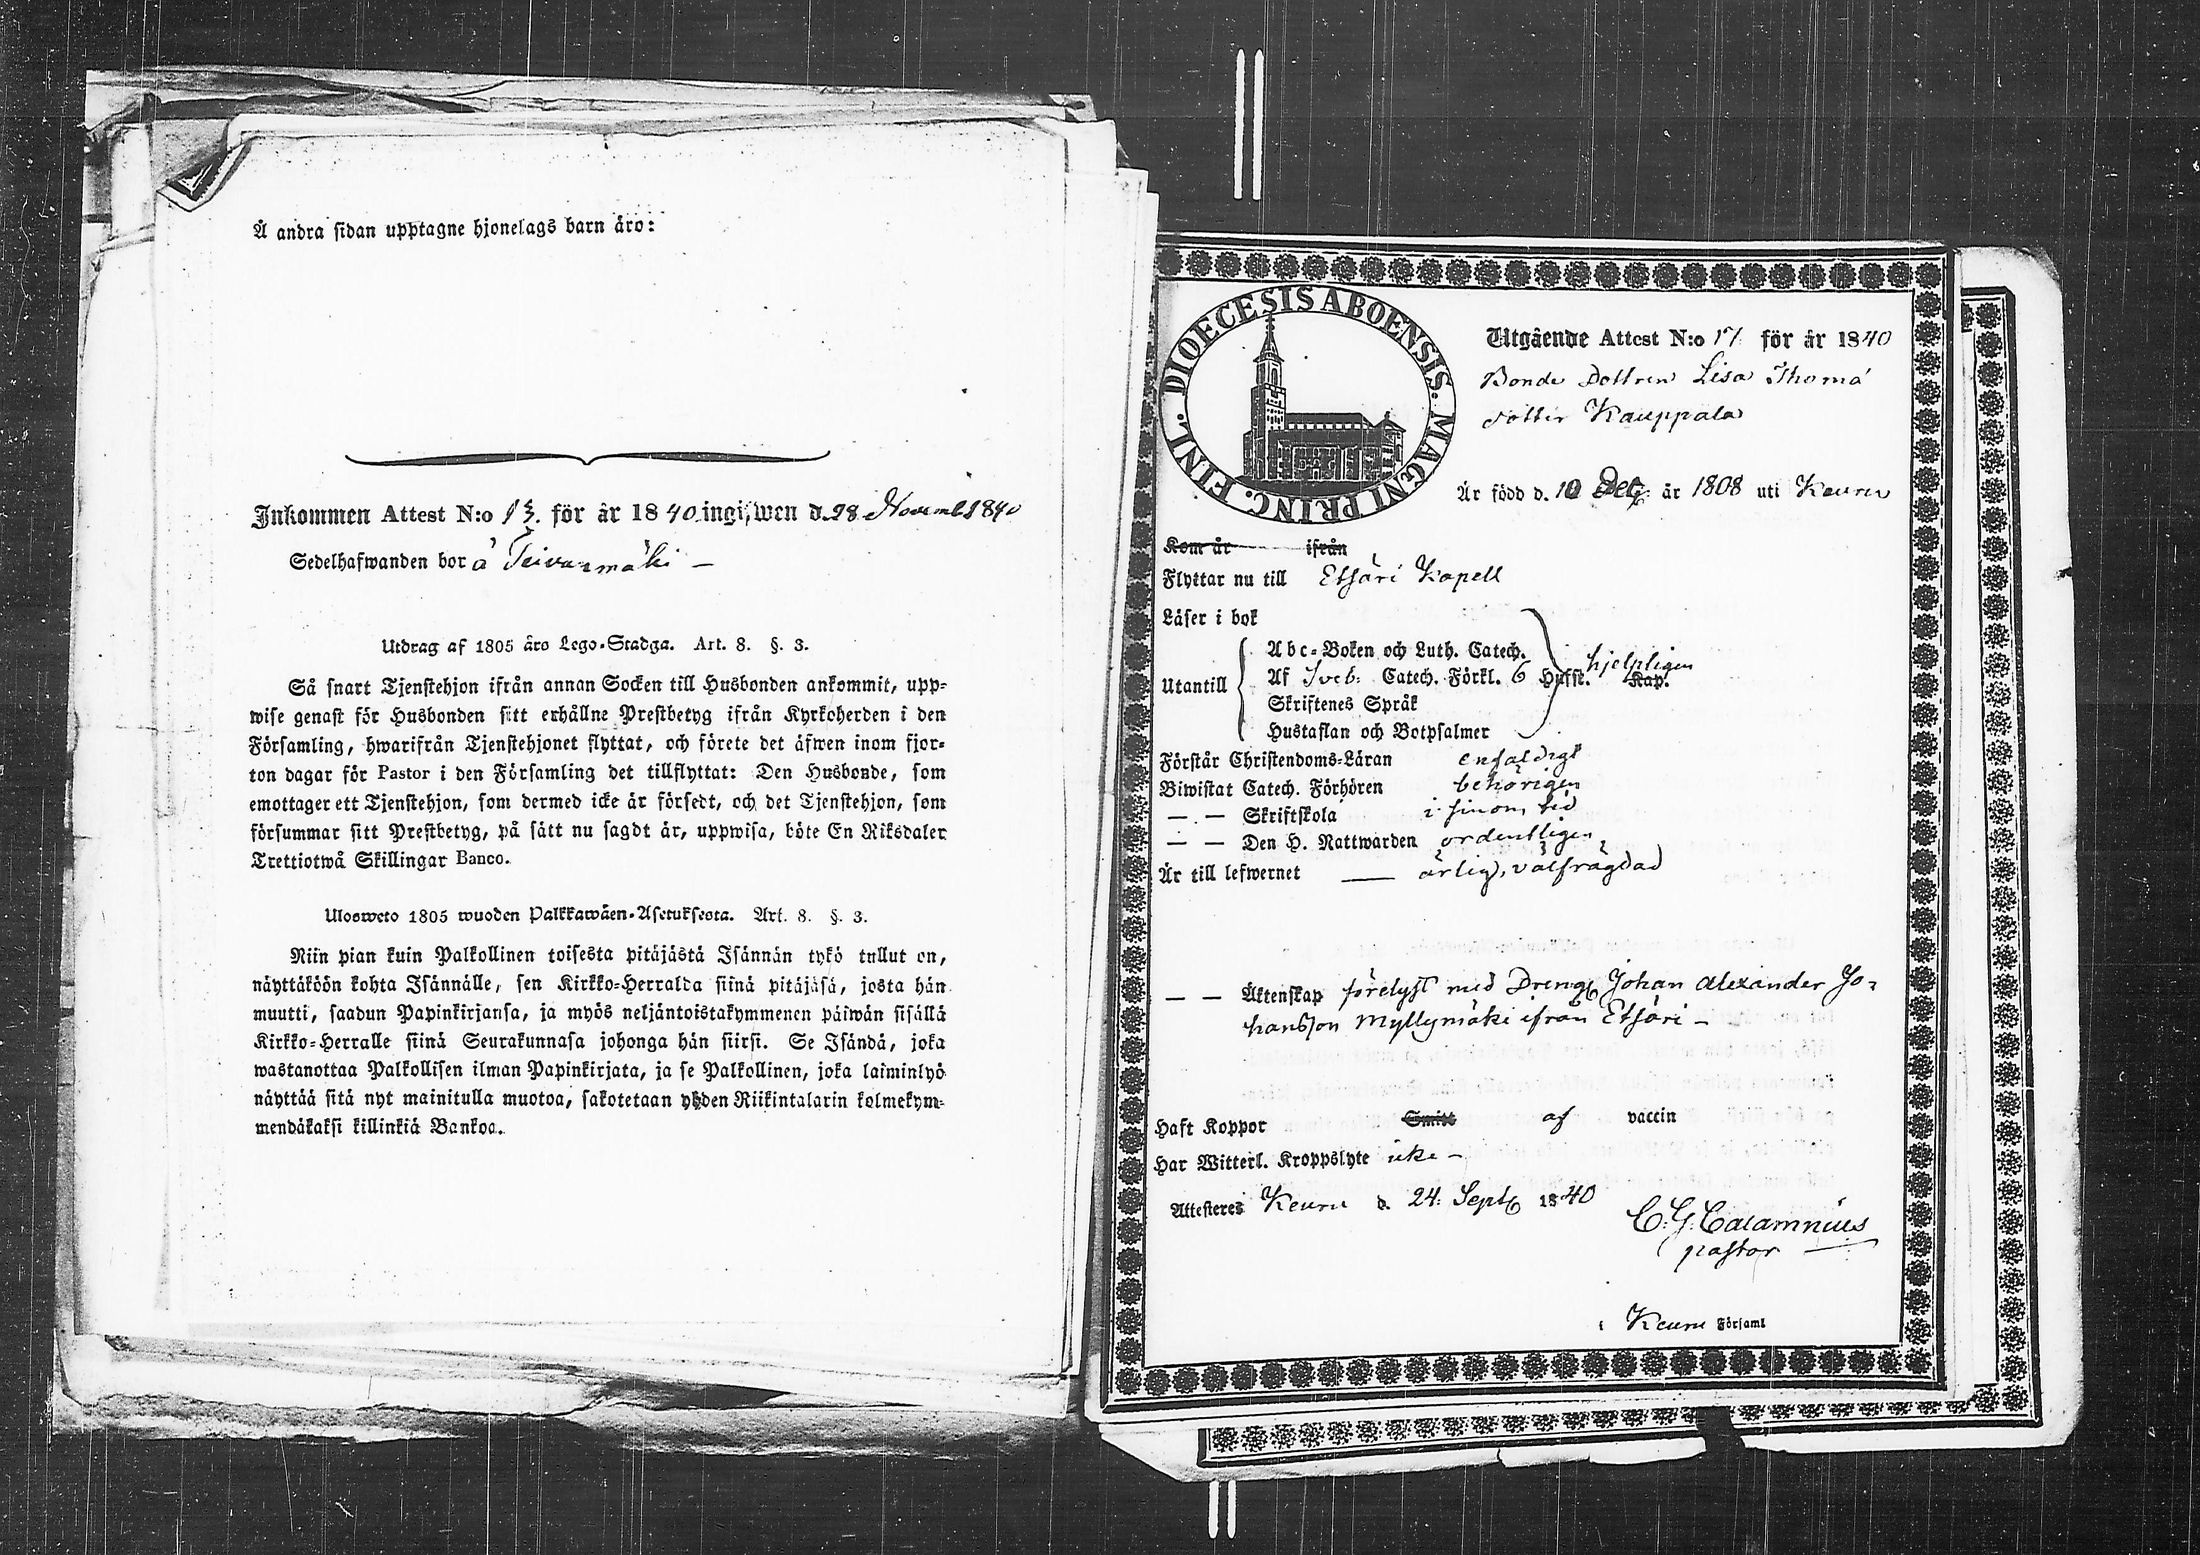 Å andra sidan upptagne hjonelags barn äro:
Inkommen Attest N:o 13. för år 1840 ingifwen d. 28 Novemb 1840
Sedelhafwanden bor å
Utdrag af 1805 års Lego-Stadga. Art. 8. §. 3.
Så snart Tjenstehjon ifrån annan Socken till Husbonden ankommit, upp-
wise genast för Husbonden sitt erhållne Prestbetyg ifrån Kyrkoherden i den
Församling, hwarifrån Tjenstehjonet flyttat, och förete det äfwen inom fjor-
ton dagar för Pastor i den Församling det tillflyttat: Den Husbonde, som
emottager ett Tjenstehjon, som dermed icke är försedt, och det Tjenstehjon, som
försummar sitt Prestbetyg, på sätt nu sagdt är, uppwisa, böte En Riksdaler
Trettiotwå Skillingar Banco.
Ulosweto 1805 wuoden Palkkawäen-Asetuksesta. Art. 8. §. 3.
Niin pian kuin Palkollinen toisesta pitäjästä Isännän tykö tullut on,
näyttäköön kohta Isännälle, sen Kirkko-Herralda siinä pitäjäsä, josta hän
muutti, saadun Papinkirjansa, ja myös neljäntoistakymmenen päiwän sisällä
Kirkko-Herralle siinä Seurakunnasa johonga hän siirsi. Se Isändä, joka
wastanottaa Palkollisen ilman Papinkirjata, ja se Palkollinen, joka laiminlyö
näyttää sitä nyt mainitulla muotoa, sakotetaan yhden Riikintalarin kolmekym-
mendäkaksi killinkiä Bankoa.
DIOECESIS ABOENSIS. MAGNI PRINC. FINL.
Utgående Attest N:o 17. för år 1840
Bonde Dottren Lisa Thomä
dotter Kauppala
Är född d. 10 Dec. år 1808 uti Keuru
Kom år ifrån
Flyttar nu till Etsäri Kapell
Läser i bok
Abc-Boken och Luth. Catech.
Utantill Af Sveb: Catech. Förkl. 6 Hufst. Kap. hjelpligen
Skriftenes Språk
Hustaflan och Botpsalmer
Förstår Christendoms-Läran enfaldigt
Biwistat Catech. Förhören behörigen
— — Skriftskola i sinom tid
— — Den H. Nattwarden ordentligen
Är till lefwernet — ärlig, välfrägdad
— — Äktenskap förelyst med Dreng Johan Alexander Jo-
hansson Myllymäki ifrån Etsäri –
Haft Koppor Smitt af vaccin
Har Witterl. Kroppslyte icke –
Attesteres Keuru d. 24. Sept 1840
C. G. Calamnius
pastor
i Keuru Församl